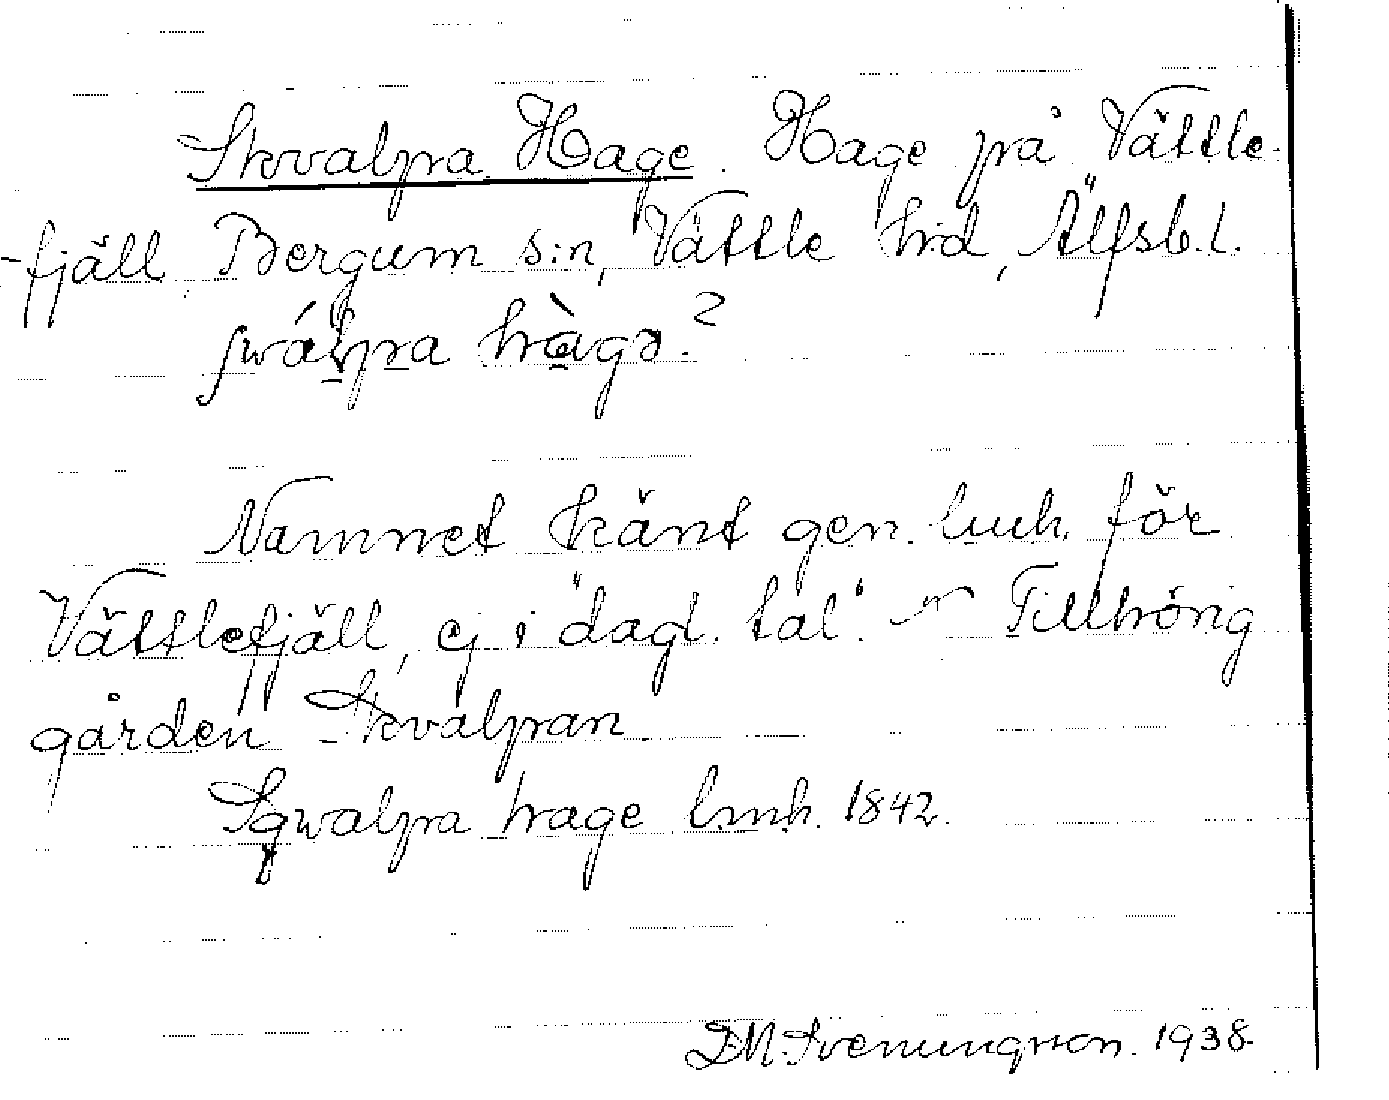 Skvalpa Hage. Hage på Vättle-
-fjäll, Bergum s:n, Vättle hd, Älfsb.l.
swálpa hàgə.?
Namnet känt gen. lmh. för
Vättlefjäll, ej i "dagl. tal". ~ Tillhörig
gården Skvalpan
Sqwalpa hage lmh. 1842.
D.M. Svenungsson. 1938